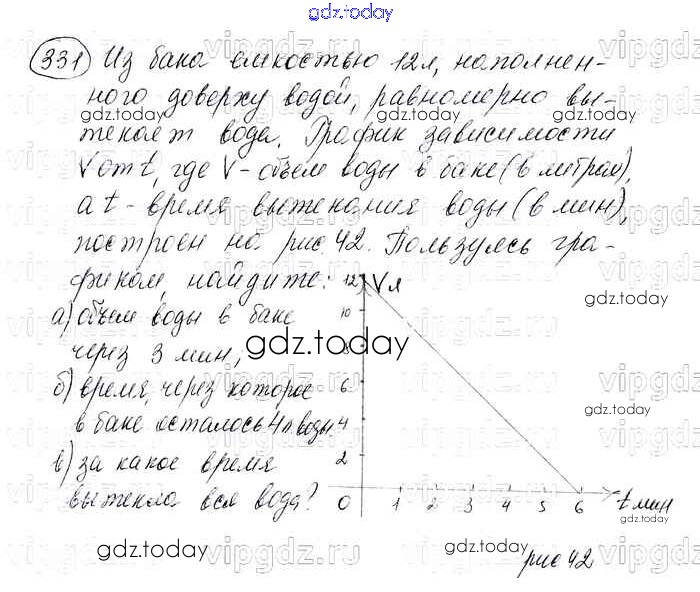 gdz.today
331 Из бака емкостью 12л, наполнен-
ного доверху водой, равномерно вы-
текает вода. График зависимости
V от t, где V - объем воды в баке (в литрах),
а t - время вытекания воды (в мин),
построен на рис. 42. Пользуясь гра-
фиком, найдите:
а) объем воды в баке
через 3 мин,
б) время, через которое
в баке осталось 4л воды.
в) за какое время
вытекла вся вода?
12 V л
10
8
6
4
2
0 1 2 3 4 5 6 t мин
рис 42
gdz.today
gdz.today
gdz.today
gdz.today
gdz.today
gdz.today
gdz.today
gdz.today
gdz.today